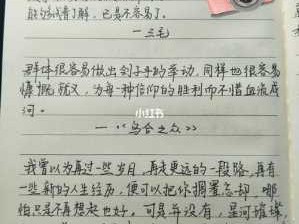 能够试着了解，已是不容易了。
一三毛
群体很容易做出刽子手的举动，同样也很容易
慷慨就义，为每一种信仰的胜利而不惜血流成
河。
小红书
一 《乌合之众》
我曾以为再过一些岁月，再走更远的一段路，再有
一些新的人生经历，便可以把你搁置忘却，哪
怕只是不再想起也好。可是并没有，星河璀璨